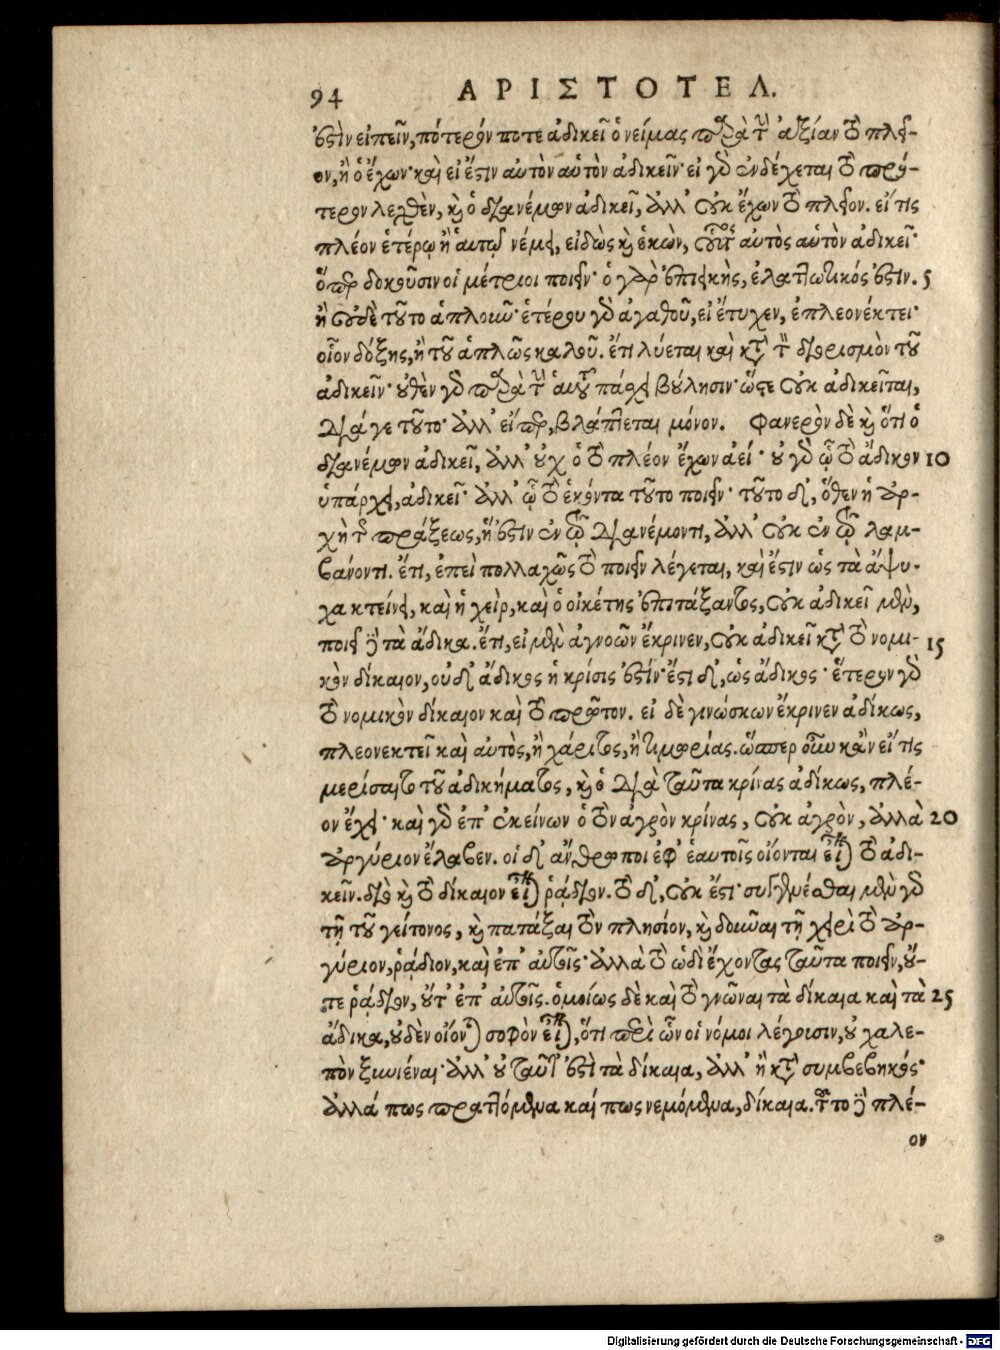 94 ΑΡΙΣΤΟΤΕΛ.
ἐστὶν εἰπεῖν, πότερόν ποτε ἀδικεῖ ὁ νείμας παρὰ τὴν ἀξίαν τὸ πλεῖ-
ον, ἢ ὁ ἔχων· καὶ εἰ ἔστιν αὐτὸν αὑτὸν ἀδικεῖν· εἰ γὰρ ἐνδέχεται τὸ πρό-
τερον λεχθὲν, καὶ ὁ διανέμων ἀδικεῖ, ἀλλ' οὐκ ἔχων τὸ πλεῖον. εἴ τις
πλέον ἑτέρῳ ἢ ἑαυτῷ νέμει, εἰδὼς καὶ ἑκὼν, οὗτος αὐτὸς αὑτὸν ἀδικεῖ·
ὅπερ δοκοῦσιν οἱ μέτριοι ποιεῖν· ὁ γὰρ ἐπιεικὴς, ἐλαττωτικός ἐστιν. 5
ἢ οὐδὲ τοῦτο ἁπλοιῦ· ἑτέρου γὰρ ἀγαθοῦ, εἰ ἔτυχεν, ἐπλεονέκτει·
οἷον δόξης, ἢ τοῦ ἁπλῶς καλοῦ. ἔτι λύεται καὶ κατὰ τὸν διορισμὸν τοῦ
ἀδικεῖν· οὐθὲν γὰρ παρὰ τὴν αὑτοῦ πάσχει βούλησιν· ὥστε οὐκ ἀδικεῖται,
διά γε τοῦτο· ἀλλ' εἴπερ, βλάπτεται μόνον. Φανερὸν δὲ καὶ ὅτι ὁ
διανέμων ἀδικεῖ, ἀλλ' οὐχ ὁ τὸ πλέον ἔχων ἀεί· οὐ γὰρ ᾧ τὸ ἄδικον 10
ὑπάρχει, ἀδικεῖ· ἀλλ' ᾧ τὸ ἑκόντα τοῦτο ποιεῖν· τοῦτο δ', ὅθεν ἡ ἀρ-
χὴ τῆς πράξεως, ἥ ἐστιν ἐν τῷ διανέμοντι, ἀλλ' οὐκ ἐν τῷ λαμ-
βάνοντι. ἔτι, ἐπεὶ πολλαχῶς τὸ ποιεῖν λέγεται, καὶ ἔστιν ὡς τὰ ἄψυ-
χα κτείνει, καὶ ἡ χεὶρ, καὶ ὁ οἰκέτης ἐπιτάξαντος, οὐκ ἀδικεῖ μὲν,
ποιεῖ δὲ τὰ ἄδικα. ἔτι, εἰ μὲν ἀγνοῶν ἔκρινεν, οὐκ ἀδικεῖ κατὰ τὸ νομι- 15
κὸν δίκαιον, οὐδ' ἄδικος ἡ κρίσις ἐστίν· ἔστι δ', ὡς ἄδικος· ἕτερον γὰρ
τὸ νομικὸν δίκαιον καὶ τὸ πρῶτον. εἰ δὲ γινώσκων ἔκρινεν ἀδίκως,
πλεονεκτεῖ καὶ αὐτὸς, ἢ χάριτος, ἢ τιμωρίας. ὥσπερ οὖν κἂν εἴ τις
μερίσαιτο τοῦ ἀδικήματος, καὶ ὁ διὰ ταῦτα κρίνας ἀδίκως, πλέ-
ον ἔχει· καὶ γὰρ ἐπ' ἐκείνων ὁ τὸν ἀγρὸν κρίνας, οὐκ ἀγρὸν, ἀλλὰ 20
ἀργύριον ἔλαβεν. οἱ δ' ἄνθρωποι ἐφ' ἑαυτοῖς οἴονται εἶναι τὸ ἀδι-
κεῖν. διὸ καὶ τὸ δίκαιον εἶναι ῥᾴδιον. τὸ δ', οὐκ ἔστι· συγγενέσθαι μὲν γὰρ
τῇ τοῦ γείτονος, καὶ πατάξαι τὸν πλησίον, καὶ δοῦναι τῇ χειρὶ τὸ ἀρ-
γύριον, ῥᾴδιον, καὶ ἐπ' αὐτοῖς· ἀλλὰ τὸ ὡδὶ ἔχοντας ταῦτα ποιεῖν, οὔ-
τε ῥᾴδιον, οὔτ' ἐπ' αὐτοῖς. ὁμοίως δὲ καὶ τὸ γνῶναι τὰ δίκαια καὶ τὰ 25
ἄδικα, οὐδὲν οἴονται σοφὸν εἶναι, ὅτι περὶ ὧν οἱ νόμοι λέγουσιν, οὐ χαλε-
πὸν ξυνιέναι· ἀλλ' οὐ ταῦτ' ἐστὶ τὰ δίκαια, ἀλλ' ἢ κατὰ συμβεβηκός·
ἀλλά πως πραττόμενα καί πως νεμόμενα, δίκαια. τοῦτο δὲ πλέ-
ον
Digitalisierung gefördert durch die Deutsche Forschungsgemeinschaft - DFG